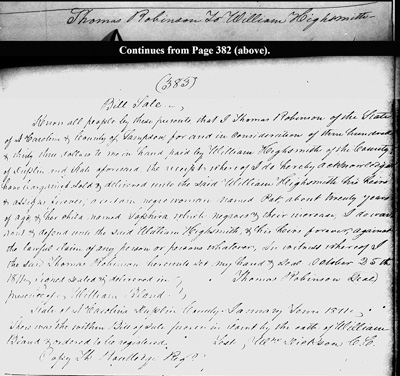 Thomas Robinson To William Highsmith
Continues from Page 382 (above).
(383)
Bill Sale
Know all people by these presents that I Thomas Robinson of the State
of N Carolina & County of Sampson for and in consideration of three hundred
& thirty three dollars to me in hand paid by William Highsmith of the County
of Duplin and State aforesaid the receipt whereof I do hereby acknowledge
have bargained sold & delivered unto the said William Highsmith his heirs
& assigs forever, a certain negro woman named Pat, about twenty years
of age & her child named Saphira which negroes & their increase, I do warr
rant & defend unto the said William Highsmith, & his heirs forever, against
the lawful claim of any person or persons whatever, In witness whereof I
the said Thomas Robinson hereunto set my hand & seal October 25th
1811, signed sealed & delivered in Thomas Robinson Seal
presence of William Bland
State of N Carolina Duplin County January Term 1811
Then was the within Bill of Sale proven in Court by the oath of William
Bland & ordered to be registered. Test Wm Dickson C.C.
Copy Th Routledge Regr